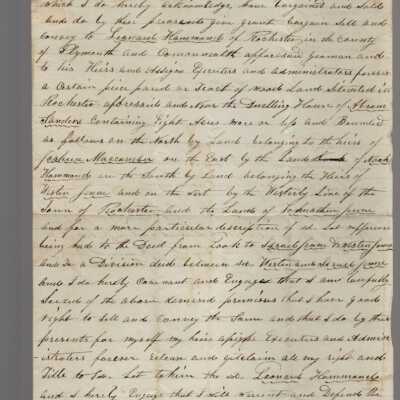 which I do hereby acknowledge, have bargained and sold
and do by these presents give grant bargain sell and
convey to Leonard Hammond of Rochester in the county
of Plymouth and Commonwealth aforesaid yeoman and
to his Heirs and Assigns Executors and administrators forever
a certain piece parcel or tract of wood Land situated in
Rochester aforesaid and near the Dwelling House of Abram
Sanders Containing Eight Acres more or less and Bounded
as follows on the North by Land belonging to the heirs of
Joshua Maccomber on the East by the Land of Noah
Hammonds on the South by Land belonging the Heirs of
and on the West by the Westerly Line of the
Town of Rochester and the Lands of Johnathan
and for a more particular description of sd. Lot refference
being had to the Deed from Look to Israel
and to a Division deed between sd. and Israel
And I do hereby Covenant and Engage that I am lawfully
Seized of the above demised premises that I have good
right to sell and Convey the Same and that I do by these
presents for myself my heirs assigns Executors and Admin
istrators forever release and quitclaim all my right and
Title to sd. Lot to him the sd. Leonard Hammond
and I hereby Engage that I will warrent and Defend the